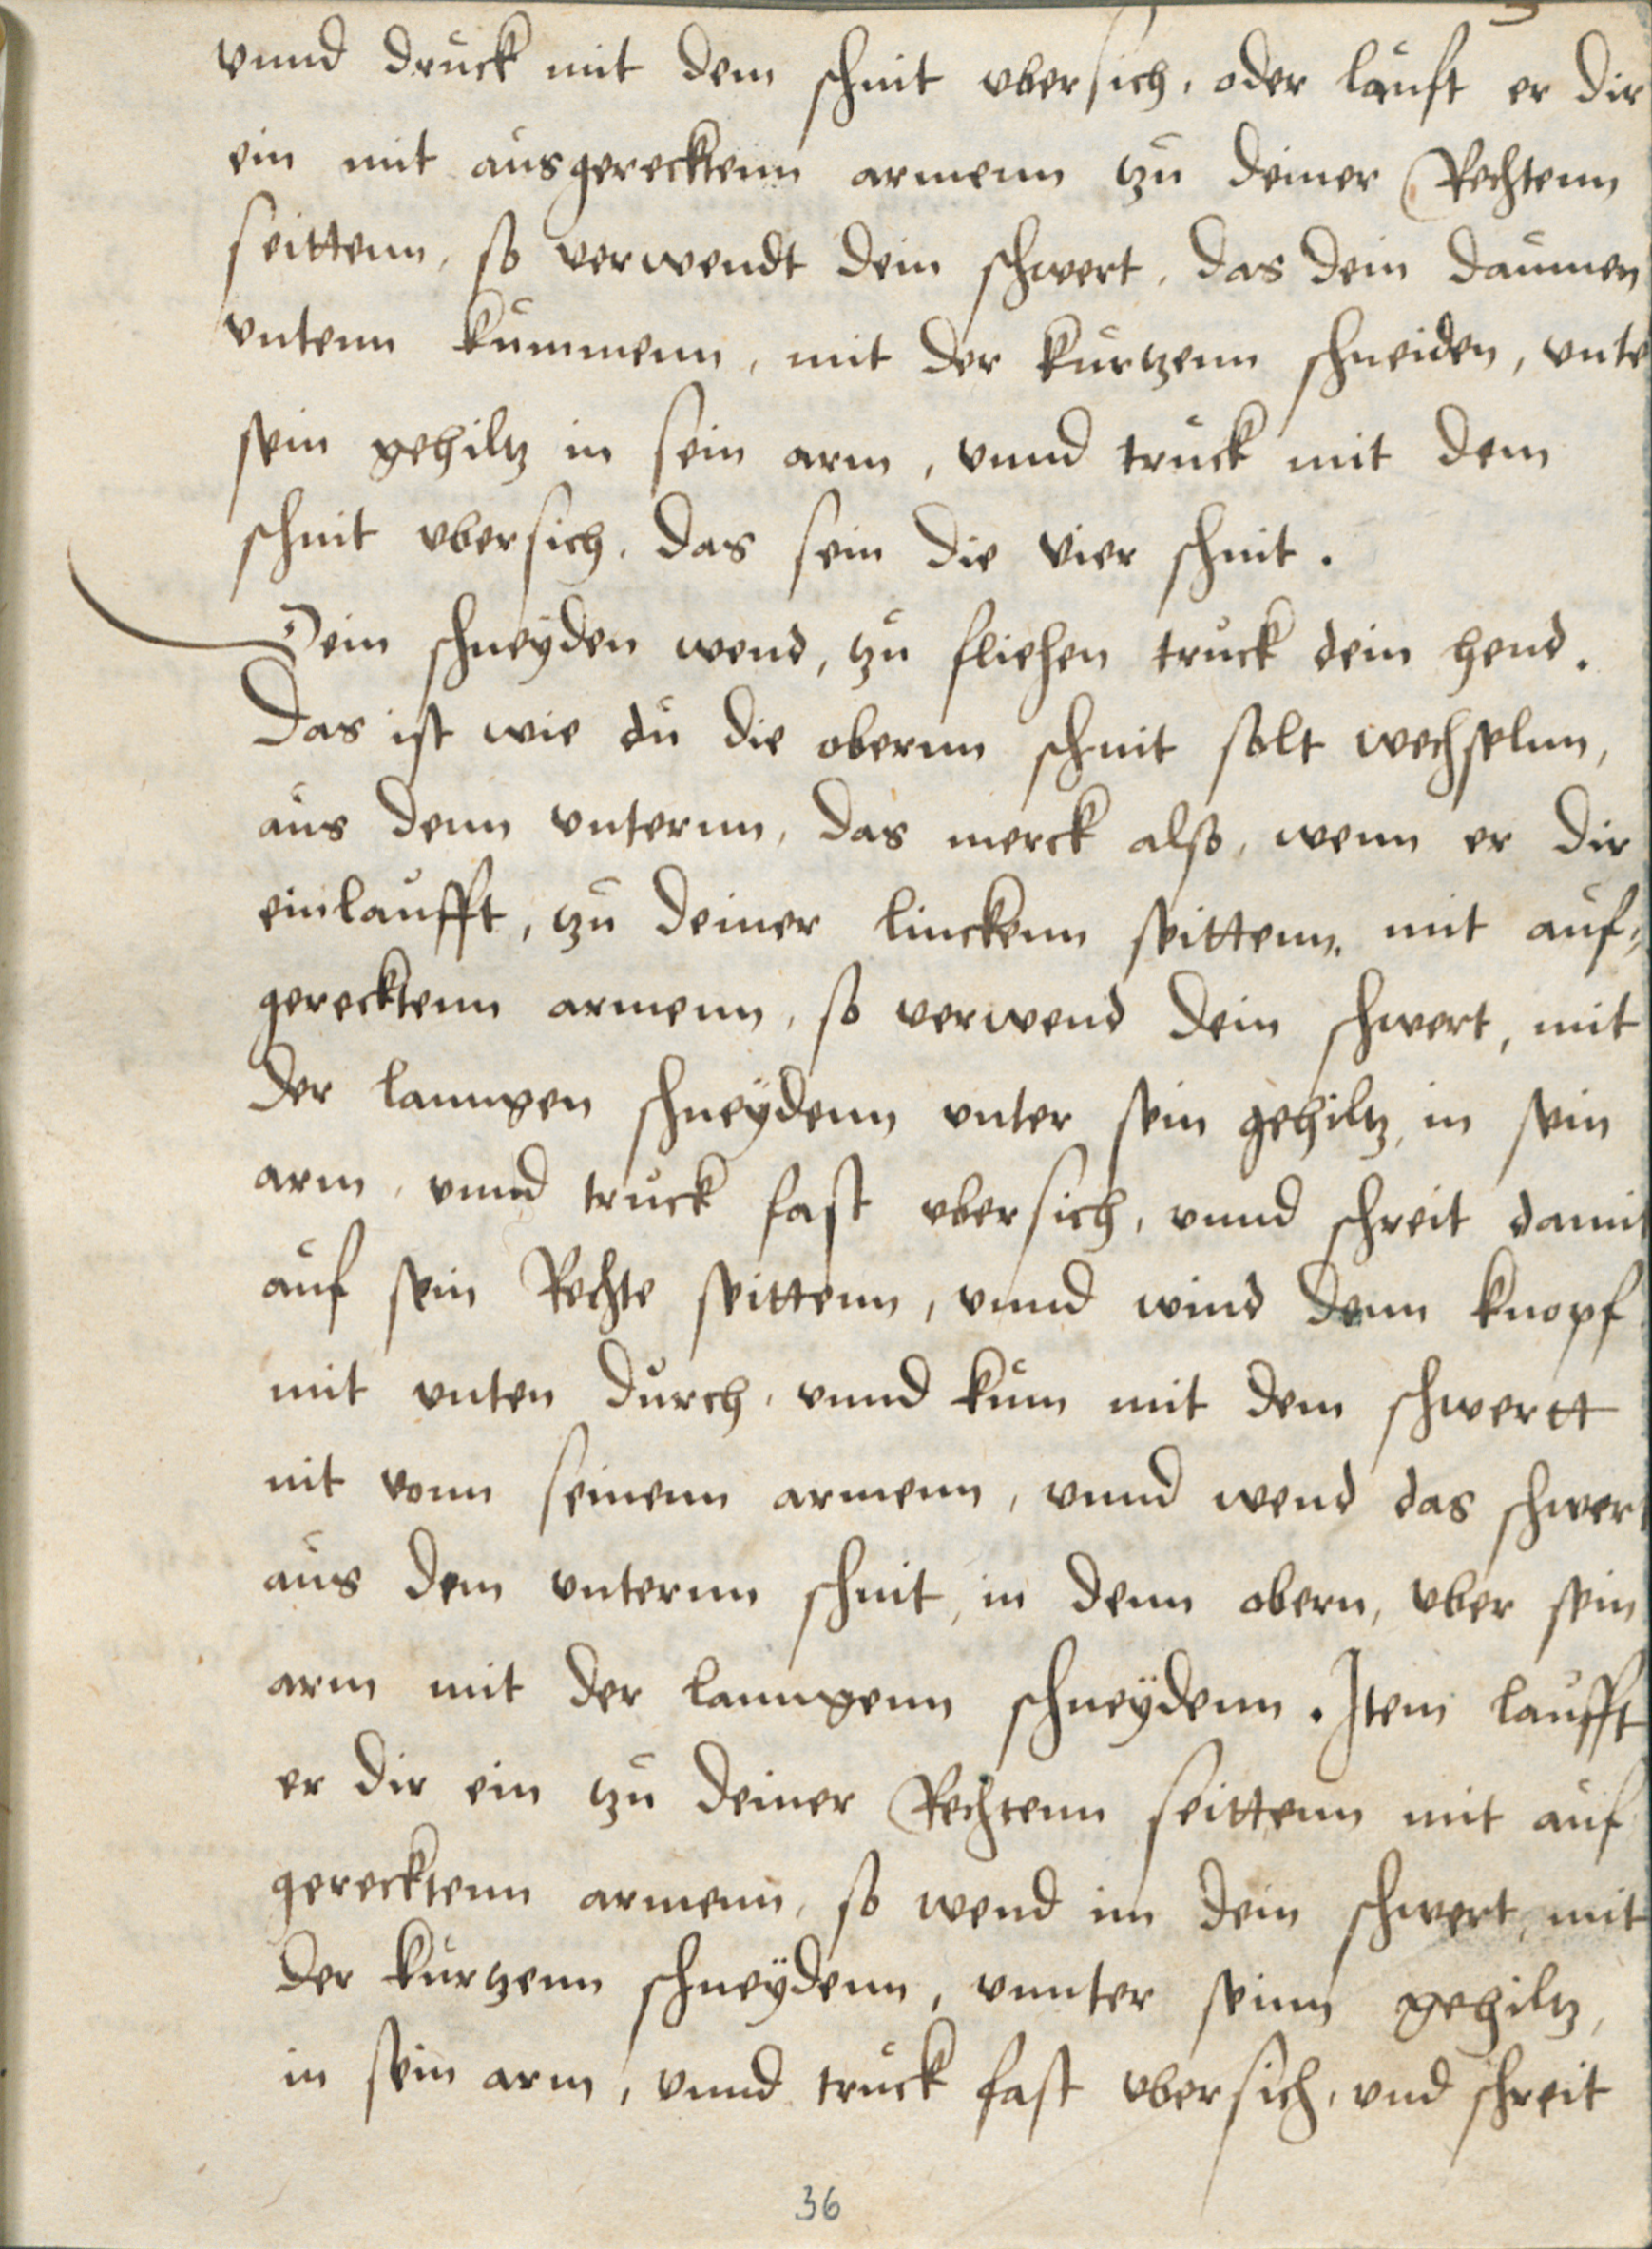 vnnd druck mit dem schnit vbersich, oder läuft er dir
ein mit ausgerecktenn armenn zu deiner Rechtenn
seittenn, so verwendt dein schwert, das dein daumen
vntenn kummenn, mit der kurtzenn schneiden, vnte
sein gehiltz in sein arm, vnnd truck mit dem
schnit vbersich. das sein die vier schnit.
Dein schneyden wend, zu fliehen truck dein hend.
Das ist wie du die obernn schnit solt wechselnn,
aus denn vnternn, das merck also, wenn er dir
einlaufft, zu deiner linckenn seittenn, mit auf⸗
gerecktenn armenn, so verwend dein schwert, mit
der lanngen schneydenn vnter sein gehiltz, in sein
arm, vnnd truck fast vbersich, vnnd schreit damit
auf sein Rechte seittenn, vnnd wind denn knopf
mit vnten durch, vnnd kum mit dem schwertt
nit vonn seinenn armenn, vnnd wend das schwert
aus dem vnternn schnit, in denn obern, vber sein
arm mit der lanngenn schneÿdenn. Item laufft
er dir ein zu deiner Rechtenn seittenn mit auf
gerecktenn armenn, so wend im dein schwert, mit
der kurtzenn schneÿdenn, vnnter seinn gehiltz,
in sein arm, vnnd truck fast vbersich, vnd schreit
36